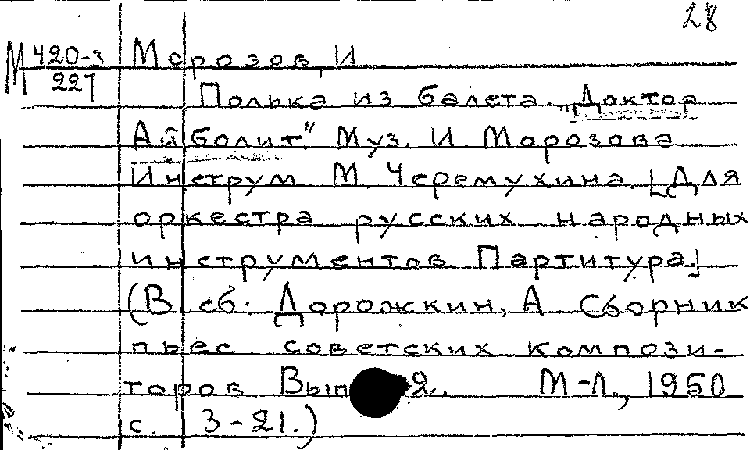 28
М 420-3 Морозов, И
221 Полька из балета „Доктор
Айболит" Муз. И Морозова
Инструм М. Черемухина [Для
оркестра русских народных
инструментов Партитура.]
(В сб: Дорожкин, А Сборник
пьес советских компози-
торов Вып 2. М-Л, 1950
с. 3-21.)